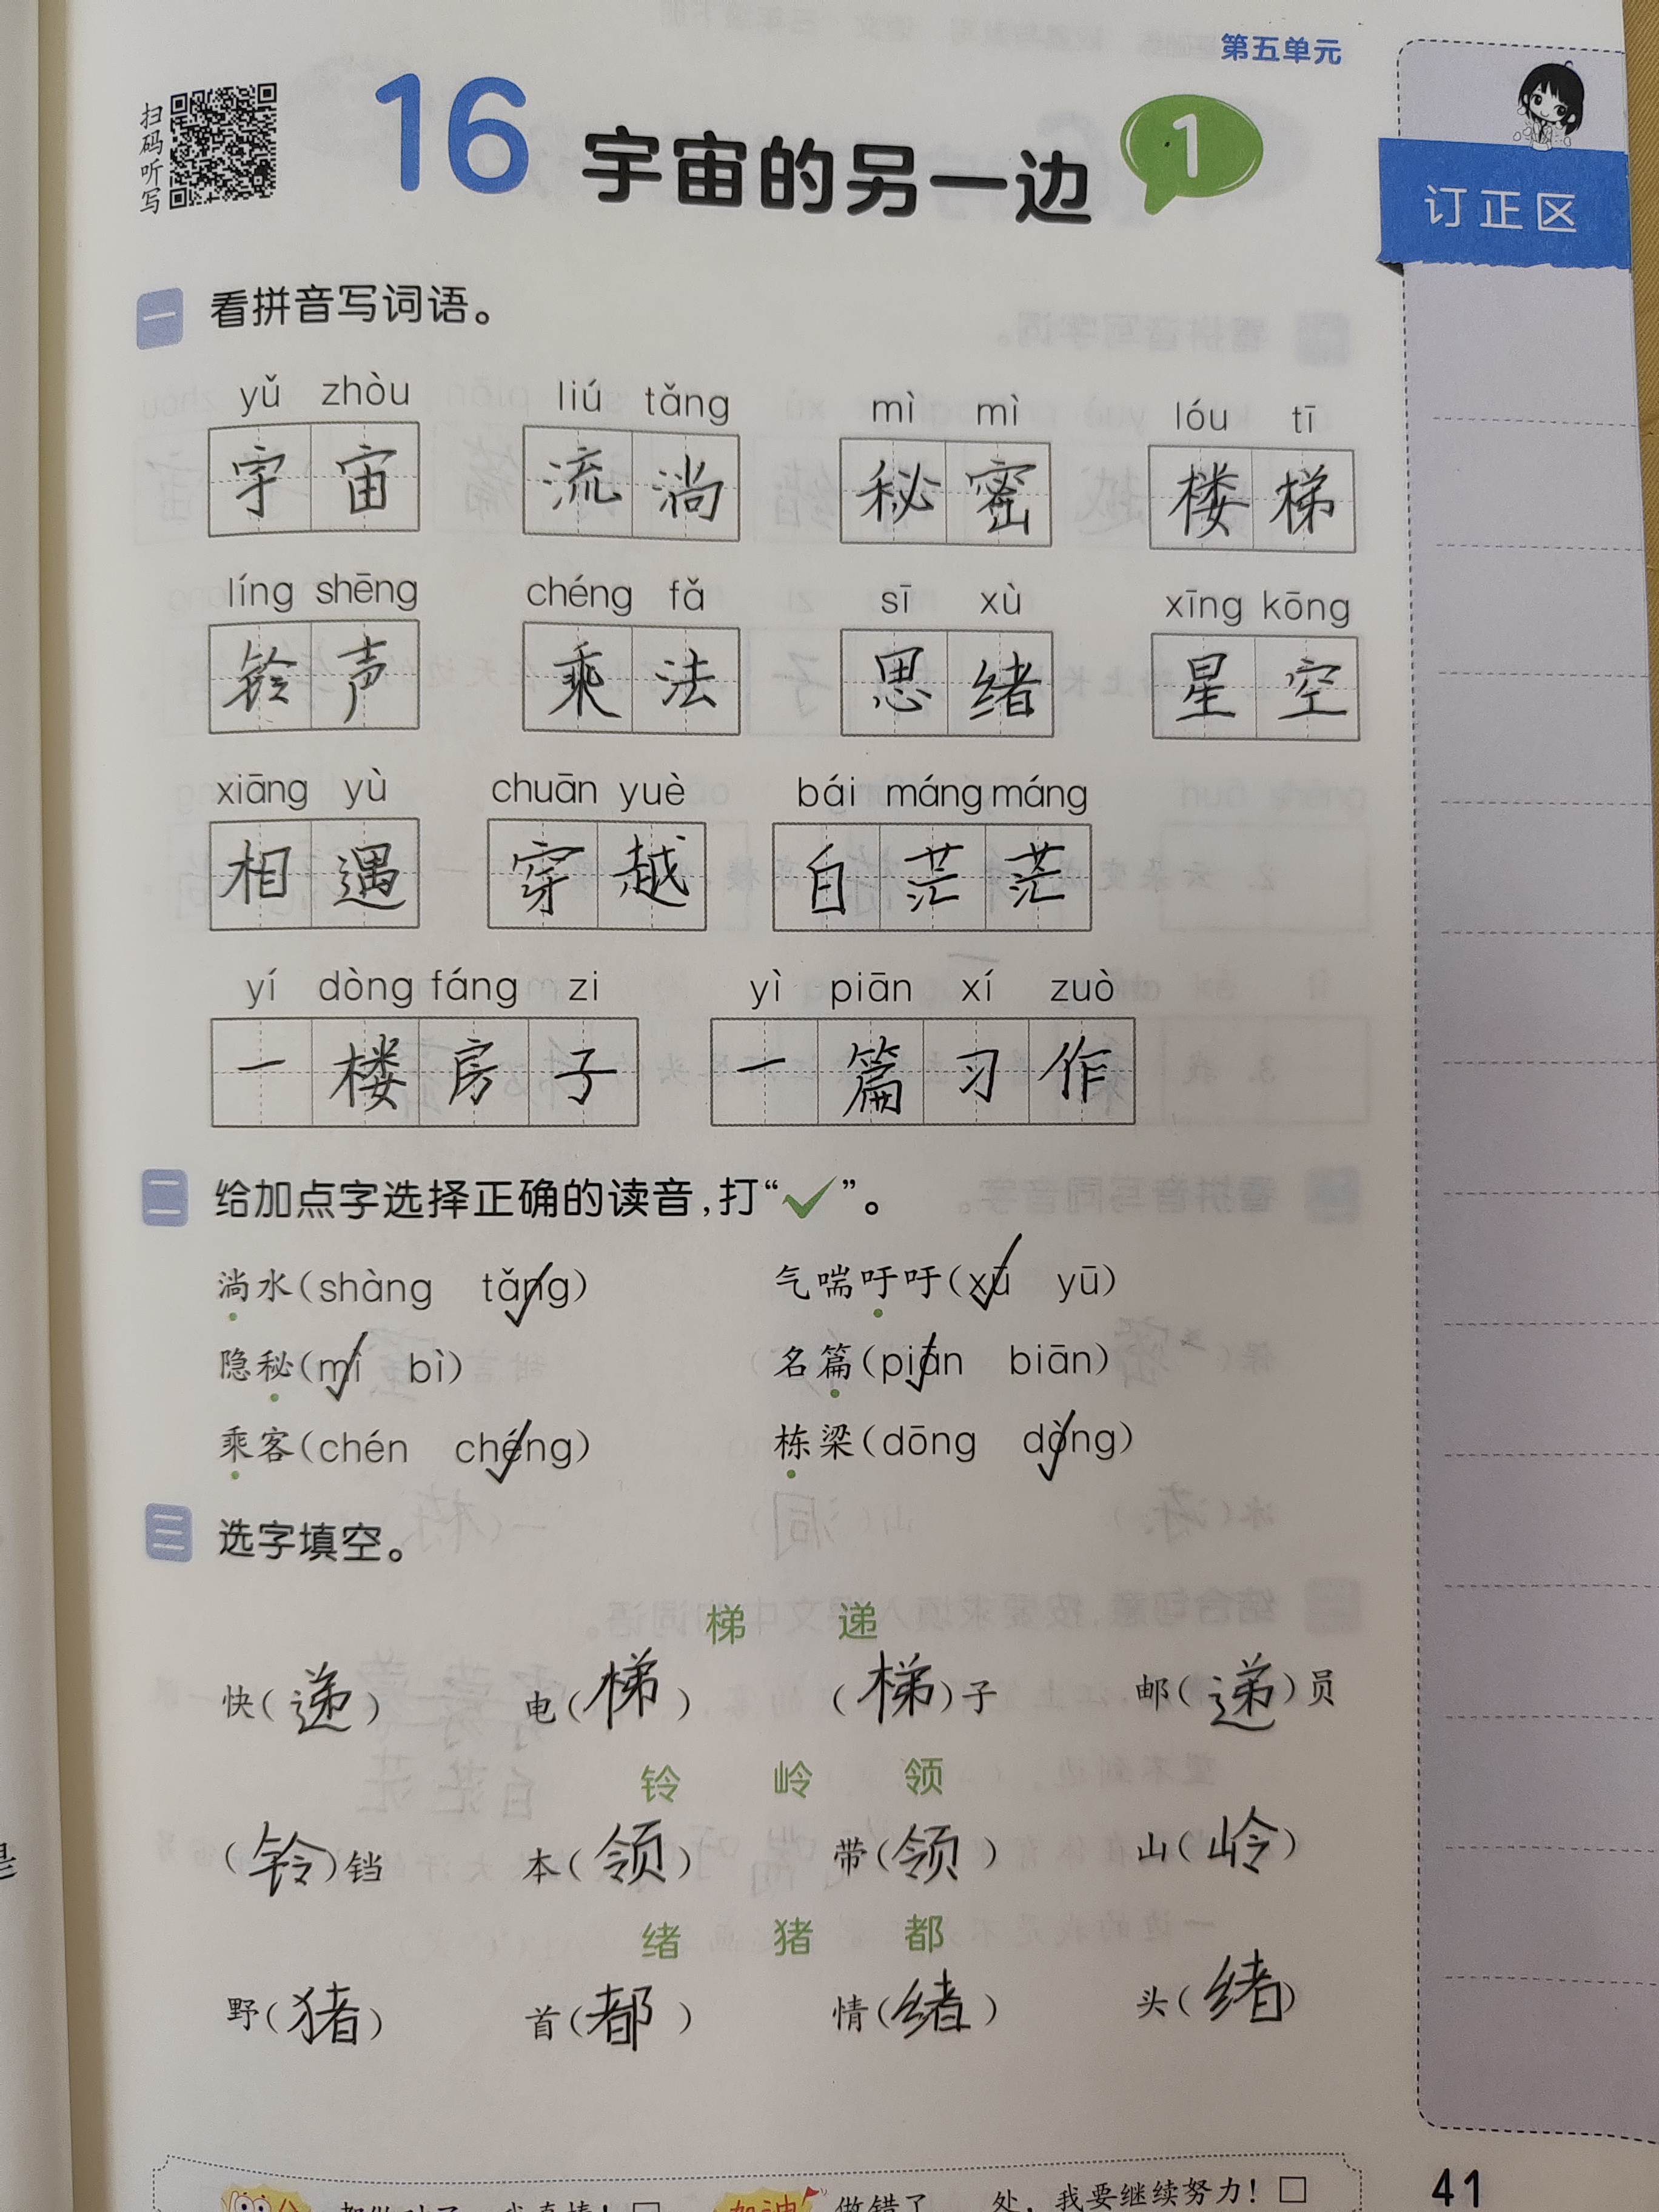 第五单元
扫码听写
16 宇宙的另一边 1
订正区
一 看拼音写词语。
yǔ zhòu liú tǎng mì mì lóu tī
宇宙 流淌 秘密 楼梯
líng shēng chéng fǎ sī xù xīng kōng
铃声 乘法 思绪 星空
xiāng yù chuān yuè bái máng máng
相遇 穿越 白茫茫
yí dòng fáng zi yì piān xí zuò
一楼房子 一篇习作
二 给加点字选择正确的读音,打“✓”。
淌水(shàng tǎng✓) 气喘吁吁(xū✓ yū)
隐秘(mì✓ bì) 名篇(piān✓ biān)
乘客(chén chéng✓) 栋梁(dōng dòng✓)
三 选字填空。
梯 递
快(递) 电(梯) (梯)子 邮(递)员
铃 岭 领
(铃)铛 本(领) 带(领) 山(岭)
绪 猪 都
野(猪) 首(都) 情(绪) 头(绪)
做错了 处,我要继续努力!□
41